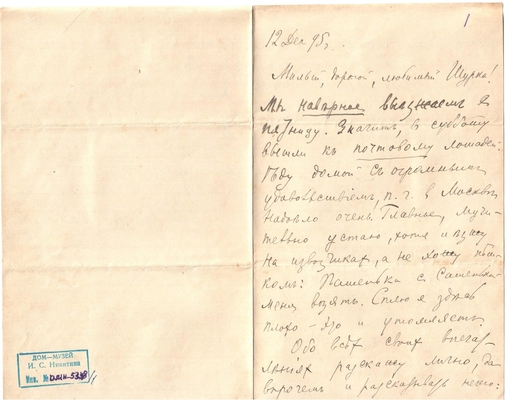 1
12 Дек 95 г.
Милый, дорогой, любимый Шурка!
Мы наверное выезжаем в
пятницу. Значит, в субботу
вышли къ почтовому лошадей.
Ѣду домой съ огромнымъ
удовольствіемъ, п. ч. в Москвѣ
надоѣло очень. Главное, мучи-
тельно устаю, хотя и ѣзжу
на извозчикахъ, а не хожу пѣш-
комъ: Пашенька с Сашенькой
меня возятъ. Сплю я здѣсь
плохо – это и утомляетъ.
Обо всѣхъ своихъ впечат-
лѣніяхъ разскажу лично, да
впрочемъ и разсказывать нечего:
ДОМ—МУЗЕЙ
И. С. Никитина
Инв. №